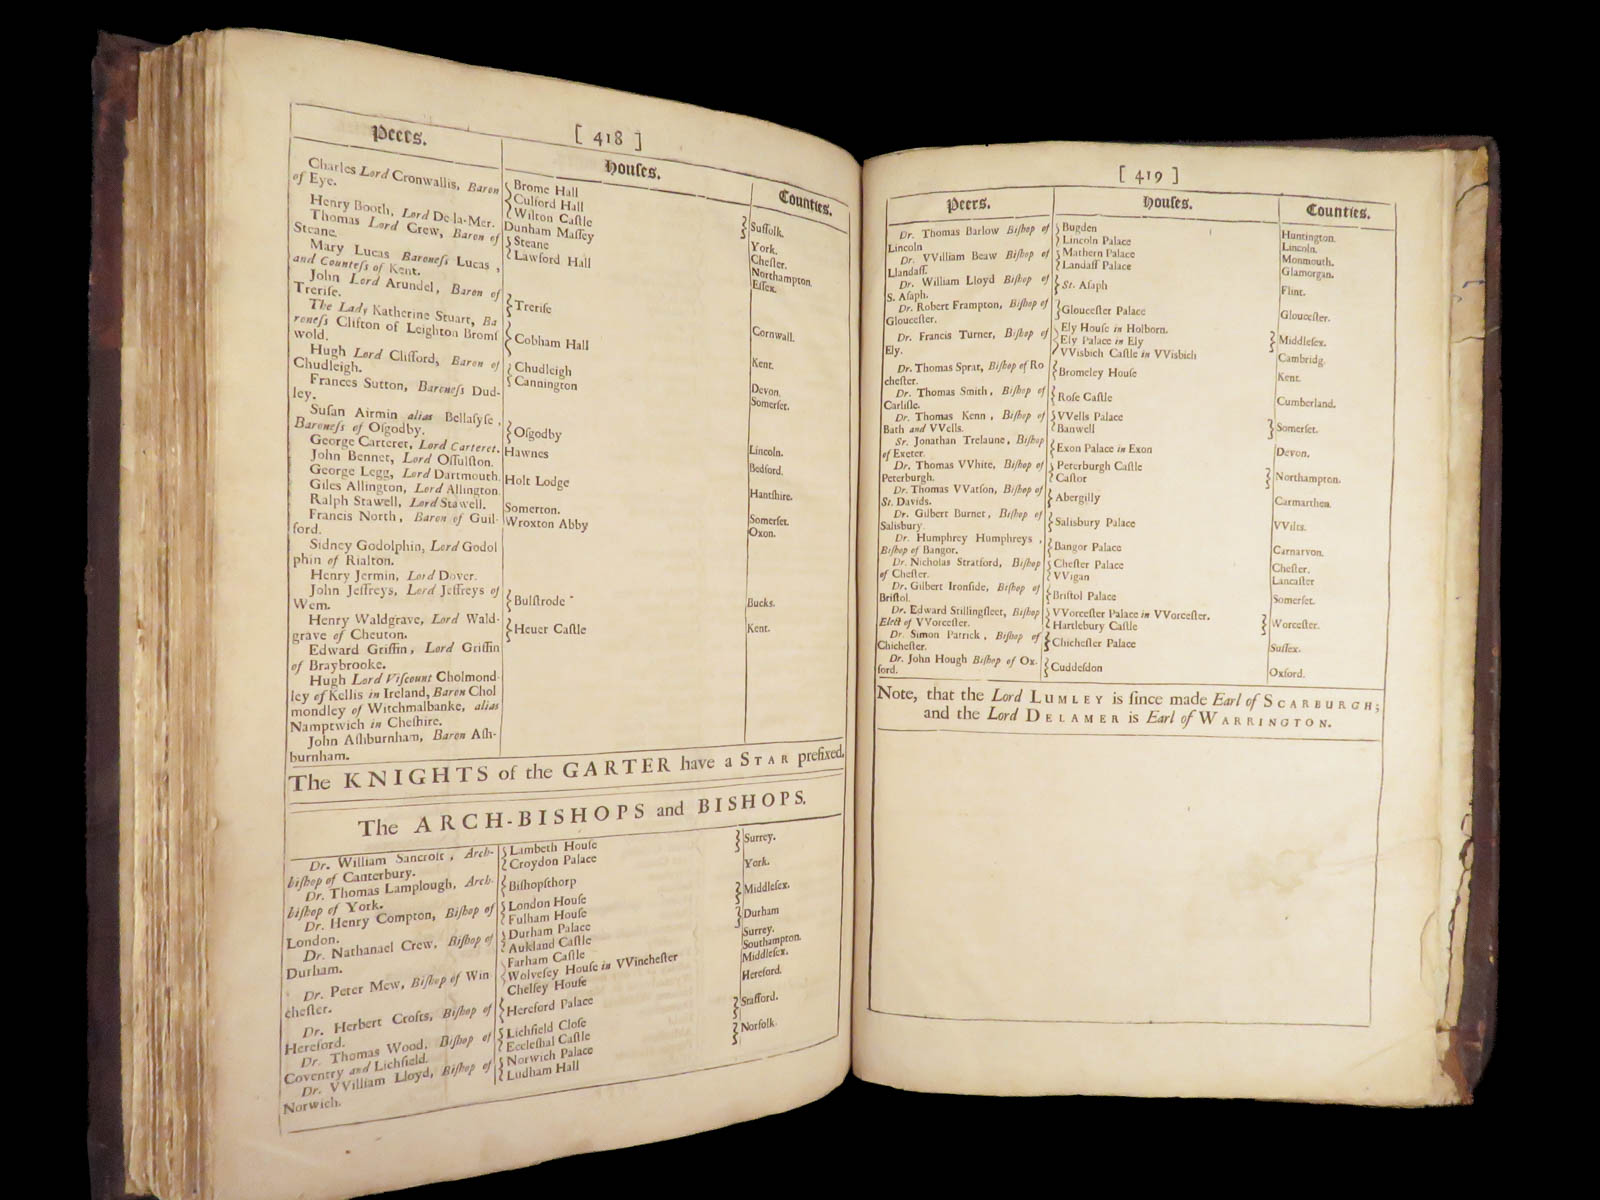 [ 418 ]
Peers.
Houſes.
Counties.
Charles Lord Cronwallis, Baron
of Eye.
Brome Hall
Culford Hall
Wilton Caſtle
Suffolk.
York.
Henry Booth, Lord De-la-Mer.
Dunham Maſſey
Cheſter.
Thomas Lord Crew, Baron of
Steane.
Steane
Lawford Hall
Northampton.
Eſſex.
Mary Lucas Baroneſs Lucas,
and Counteſs of Kent.
John Lord Arundel, Baron of
Treriſe.
Treriſe
Cornwall.
The Lady Katherine Stuart, Ba
roneſs Clifton of Leighton Bromſ
wold.
Cobham Hall
Kent.
Hugh Lord Clifford, Baron of
Chudleigh.
Chudleigh
Cannington
Devon.
Somerſet.
Frances Sutton, Baroneſs Dud-
ley.
Suſan Airmin alias Bellaſyſe,
Baroneſs of Oſgodby.
Oſgodby
Lincoln.
George Carteret, Lord Carteret.
Hawnes
Bedford.
John Bennet, Lord Oſſulſton.
George Legg, Lord Dartmouth.
Holt Lodge
Hantſhire.
Giles Allington, Lord Allington.
Ralph Stawell, Lord Stawell.
Somerton.
Somerſet.
Francis North, Baron of Guil-
ford.
Wroxton Abby
Oxon.
Sidney Godolphin, Lord Godol
phin of Rialton.
Henry Jermin, Lord Dover.
John Jeffreys, Lord Jeffreys of
Wem.
Bulſtrode
Bucks.
Henry Waldgrave, Lord Wald-
grave of Cheuton.
Heuer Caſtle
Kent.
Edward Griffin, Lord Griffin
of Braybrooke.
Hugh Lord Viſcount Cholmond-
ley of Kellis in Ireland, Baron Chol
mondley of Witchmalbanke, alias
Namptwich in Cheſhire.
John Aſhburnham, Baron Aſh-
burnham.
The KNIGHTS of the GARTER have a STAR prefixed.
The ARCH-BISHOPS and BISHOPS.
Dr. William Sancroft, Arch-
biſhop of Canterbury.
Lambeth Houſe
Croydon Palace
Surrey.
Dr. Thomas Lamplough, Arch-
biſhop of York.
Biſhopſthorp
York.
Dr. Henry Compton, Biſhop of
London.
London Houſe
Fulham Houſe
Middleſex.
Dr. Nathanael Crew, Biſhop of
Durham.
Durham Palace
Aukland Caſtle
Durham
Dr. Peter Mew, Biſhop of Win
cheſter.
Farham Caſtle
Wolveſey Houſe in VVincheſter
Chelſey Houſe
Surrey.
Southampton.
Middleſex.
Dr. Herbert Crofts, Biſhop of
Hereford.
Hereford Palace
Hereford.
Dr. Thomas Wood, Biſhop of
Coventry and Lichfield.
Lichfield Cloſe
Eccleſhal Caſtle
Stafford.
Dr. VVilliam Lloyd, Biſhop of
Norwich.
Norwich Palace
Ludham Hall
Norfolk.
[ 419 ]
Peers.
Houſes.
Counties.
Dr. Thomas Barlow Biſhop of
Lincoln
Bugden
Lincoln Palace
Huntington.
Lincoln.
Dr. VVilliam Beaw Biſhop of
Llandaff.
Mathern Palace
Landaff Palace
Monmouth.
Glamorgan.
Dr. William Lloyd Biſhop of
S. Aſaph.
St. Aſaph
Flint.
Dr. Robert Frampton, Biſhop of
Glouceſter.
Glouceſter Palace
Glouceſter.
Dr. Francis Turner, Biſhop of
Ely.
Ely Houſe in Holborn.
Ely Palace in Ely
VVisbich Caſtle in VVisbich
Middleſex.
Cambridg.
Dr. Thomas Sprat, Biſhop of Ro
cheſter.
Bromeley Houſe
Kent.
Dr. Thomas Smith, Biſhop of
Carliſle.
Roſe Caſtle
Cumberland.
Dr. Thomas Kenn, Biſhop of
Bath and VVells.
VVells Palace
Banwell
Somerſet.
Sr. Jonathan Trelaune, Biſhop
of Exeter.
Exon Palace in Exon
Devon.
Dr. Thomas VVhite, Biſhop of
Peterburgh.
Peterburgh Caſtle
Caſtor
Northampton.
Dr. Thomas VVatſon, Biſhop of
St. Davids.
Abergilly
Carmarthen.
Dr. Gilbert Burnet, Biſhop of
Salisbury.
Salisbury Palace
VVilts.
Dr. Humphrey Humphreys,
Biſhop of Bangor.
Bangor Palace
Carnarvon.
Dr. Nicholas Stratford, Biſhop
of Cheſter.
Cheſter Palace
VVigan
Cheſter.
Lancaſter
Dr. Gilbert Ironſide, Biſhop of
Briſtol.
Briſtol Palace
Somerſet.
Dr. Edward Stillingfleet, Biſhop
Elect of VVorceſter.
VVorceſter Palace in VVorceſter.
Hartlebury Caſtle
Worceſter.
Dr. Simon Patrick, Biſhop of
Chicheſter.
Chicheſter Palace
Suſſex.
Dr. John Hough Biſhop of Ox-
ford.
Cuddeſdon
Oxford.
Note, that the Lord LUMLEY is ſince made Earl of SCARBURGH;
and the Lord DELAMER is Earl of WARRINGTON.